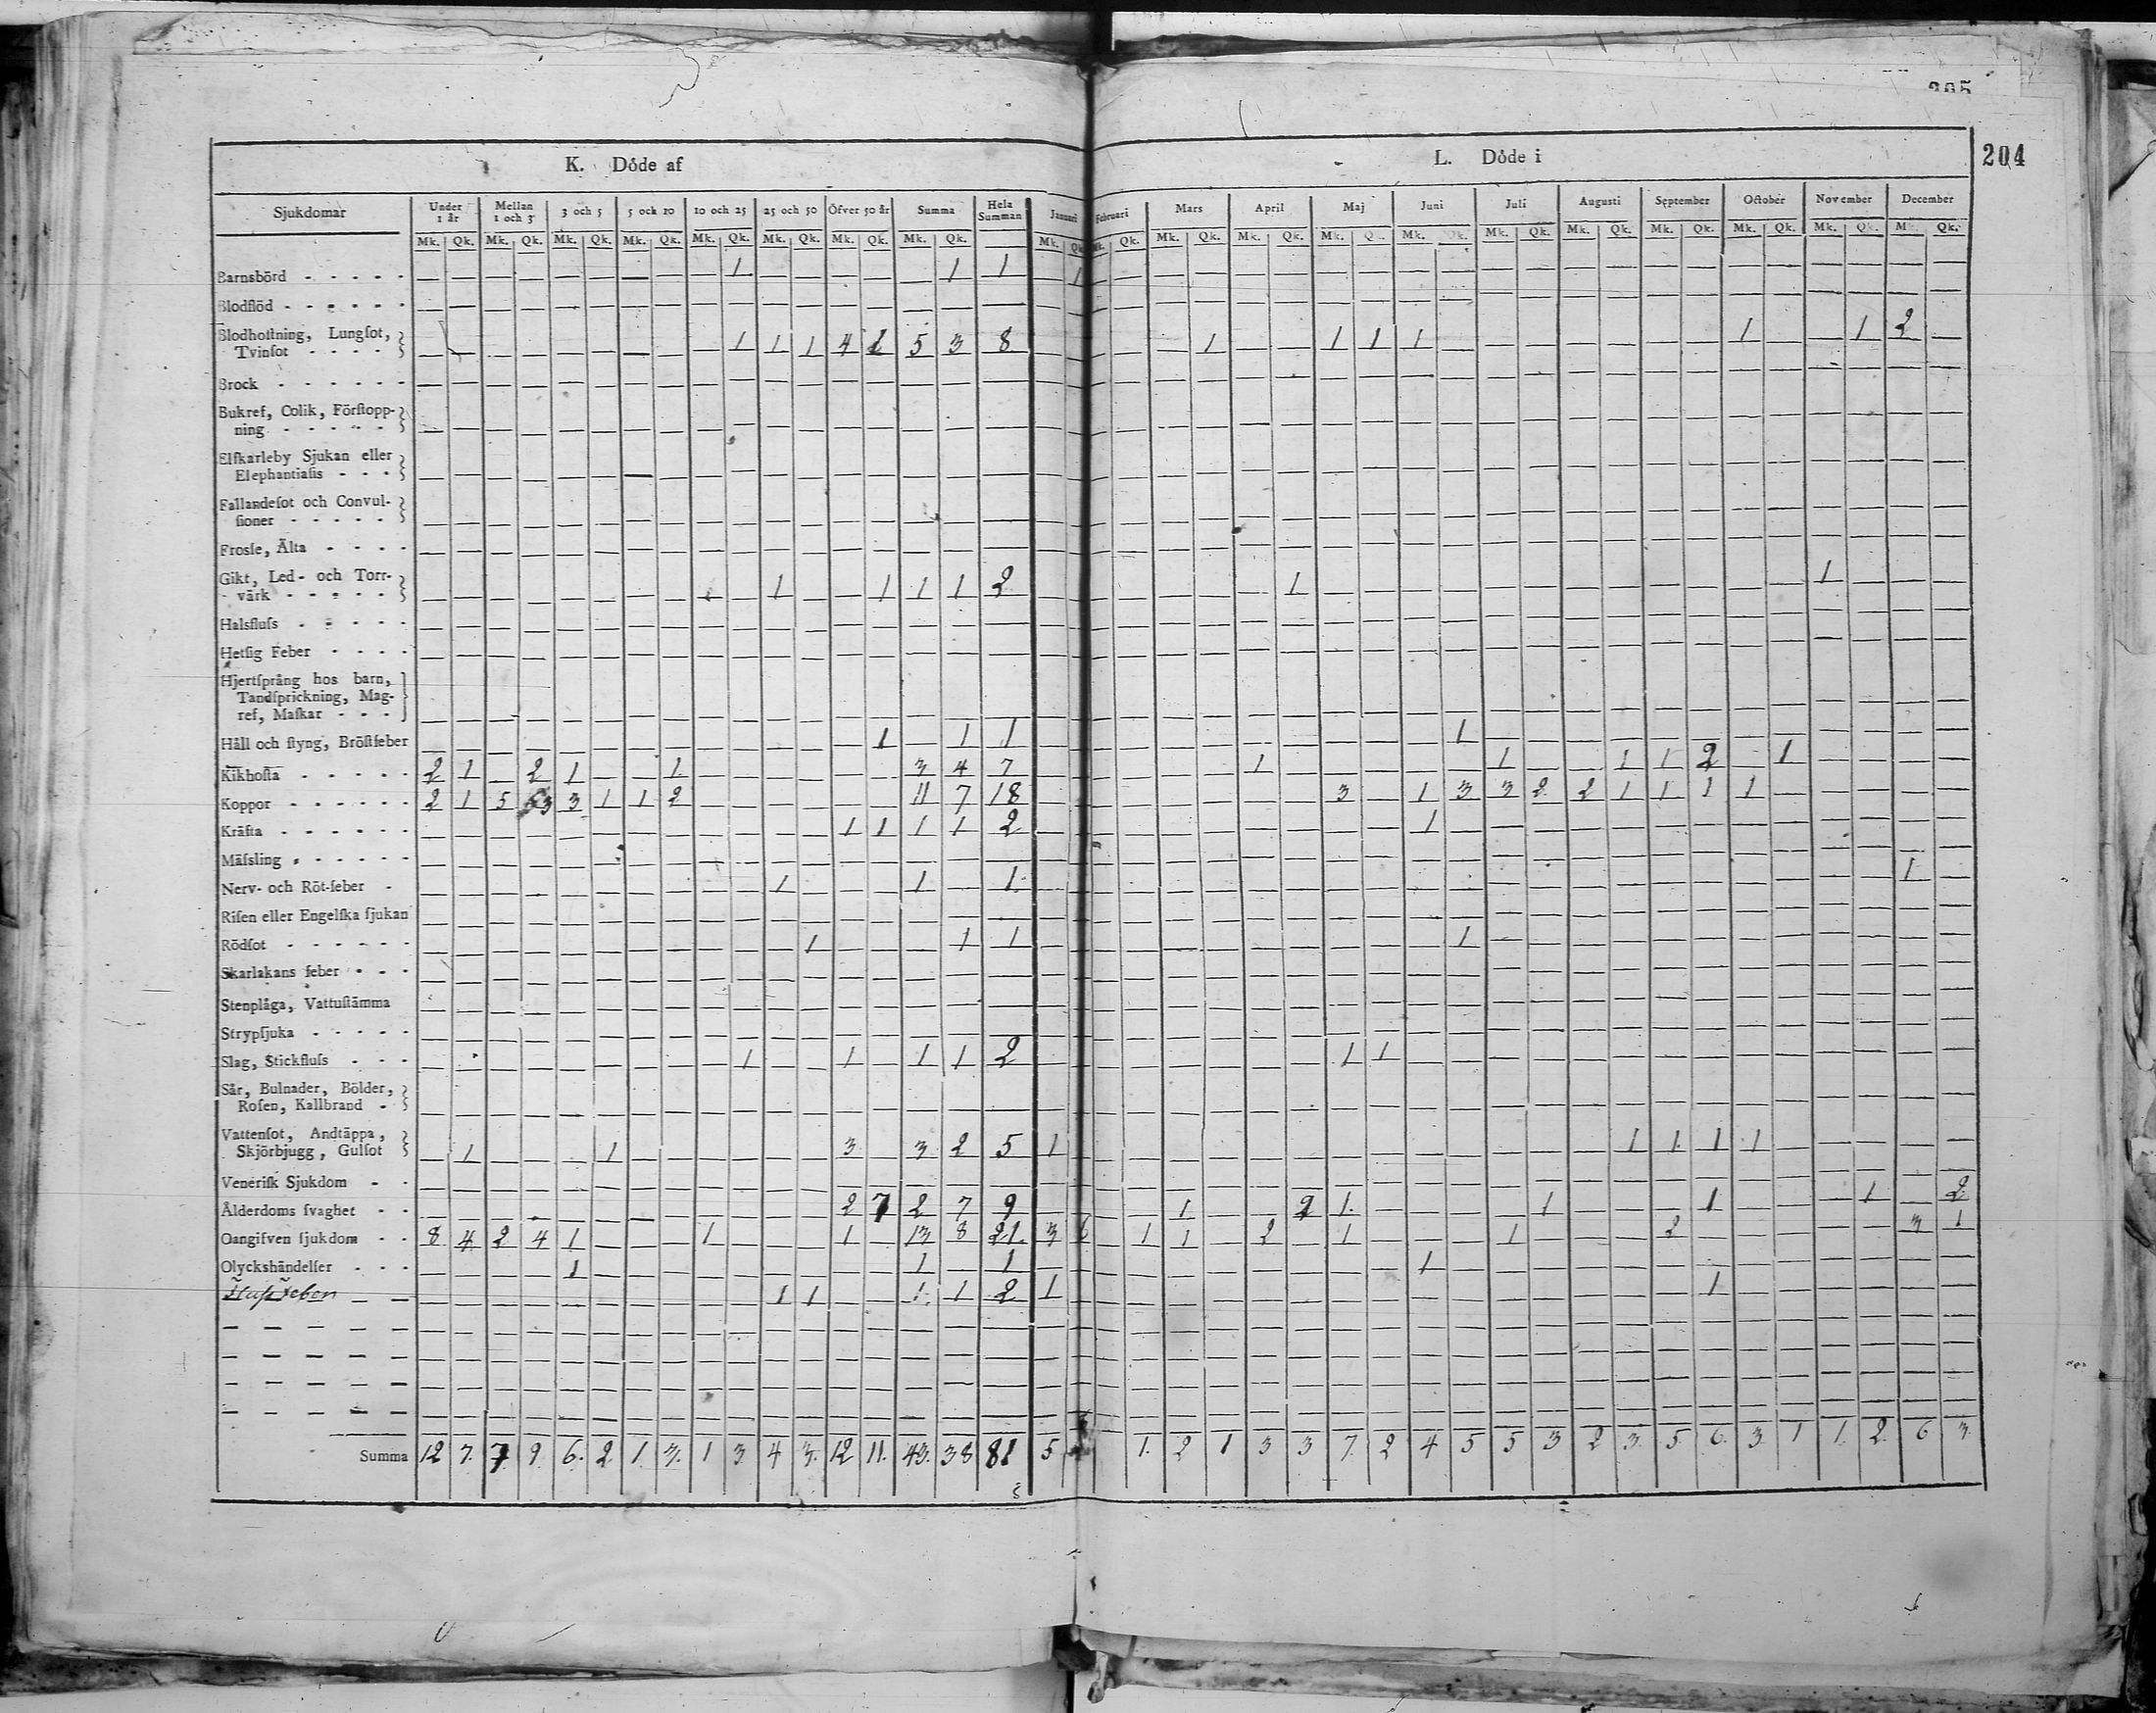 305
204
K. Döde af
L. Döde i
Sjukdomar Under 1 år Mellan 1 och 3 3 och 5 5 och 10 10 och 25 25 och 50 Öfver 50 år Summa Hela Summan Januari Februari Mars April Maj Juni Juli Augusti September October November December
Mk. Qk. Mk. Qk. Mk. Qk. Mk. Qk. Mk. Qk. Mk. Qk. Mk. Qk. Mk. Qk. Mk. Qk. Mk. Qk. Mk. Qk. Mk. Qk. Mk. Q. Mk. Qk. Mk. Qk. Mk. Qk. Mk. Qk. Mk. Qk. Mk. Qk. M. Qk.
Barnsbörd - - - - - 1 1 1 1
Blodflöd - - - - - -
Blodhoſtning, Lungſot,
Tvinſot - - - - 1 1 1 4 1 5 3 8 1 1 1 1 1 1 2
Brock - - - - - -
Bukref, Colik, Förſtopp-
ning - - - - -
Elfkarleby Sjukan eller
Elephantiaſis - - -
Fallandeſot och Convul-
ſioner - - - - -
Frosſe, Älta - - - -
Gikt, Led- och Torr-
värk - - - - - 1 1 1 1 2 1 1
Halsfluſs - - - - -
Hetſig Feber - - - -
Hjertſprång hos barn,
Tandſprickning, Mag-
ref, Maſkar - - -
Håll och ſtyng, Bröſtfeber 1 1 1 1
Kikhoſta - - - - - 2 1 2 1 1 3 4 7 1 1 1 1 2 1
Koppor - - - - - - 2 1 5 3 3 1 1 2 11 7 18 3 1 3 3 2 2 1 1 1 1
Kräfta - - - - - - 1 1 1 1 2 1
Mäſsling - - - - - -
Nerv- och Röt-feber - 1 1 1 1
Riſen eller Engelſka ſjukan
Rödſot - - - - - - 1 1 1 1
Skarlakans feber - - -
Stenplåga, Vattuſtämma
Strypſjuka - - - - -
Slag, Stickfluſs - - - 1 1 1 1 2 1 1
Sår, Bulnader, Bölder,
Roſen, Kallbrand -
Vattenſot, Andtäppa,
Skjörbjugg, Gulſot 1 1 3 3 2 5 1 1 1 1 1
Veneriſk Sjukdom - -
Ålderdoms ſvaghet - - 2 7 2 7 9 1 2 1. 1 1 1 2
Oangifven ſjukdom - - 8 4 2 4 1 1 1 13 8 21. 3 6 1 1 2 1 1 2 3 1
Olyckshändelſer - - - 1 1 1 1
1 1 1. 1 2 1 1
Summa 12 7. 7 9. 6. 2 1. 3. 1 3 4 3. 12 11. 43. 38 81 5 1. 2 1 3 3 7. 2 4 5 5 3 2 3. 5 6. 3 1 1. 2 6 3.